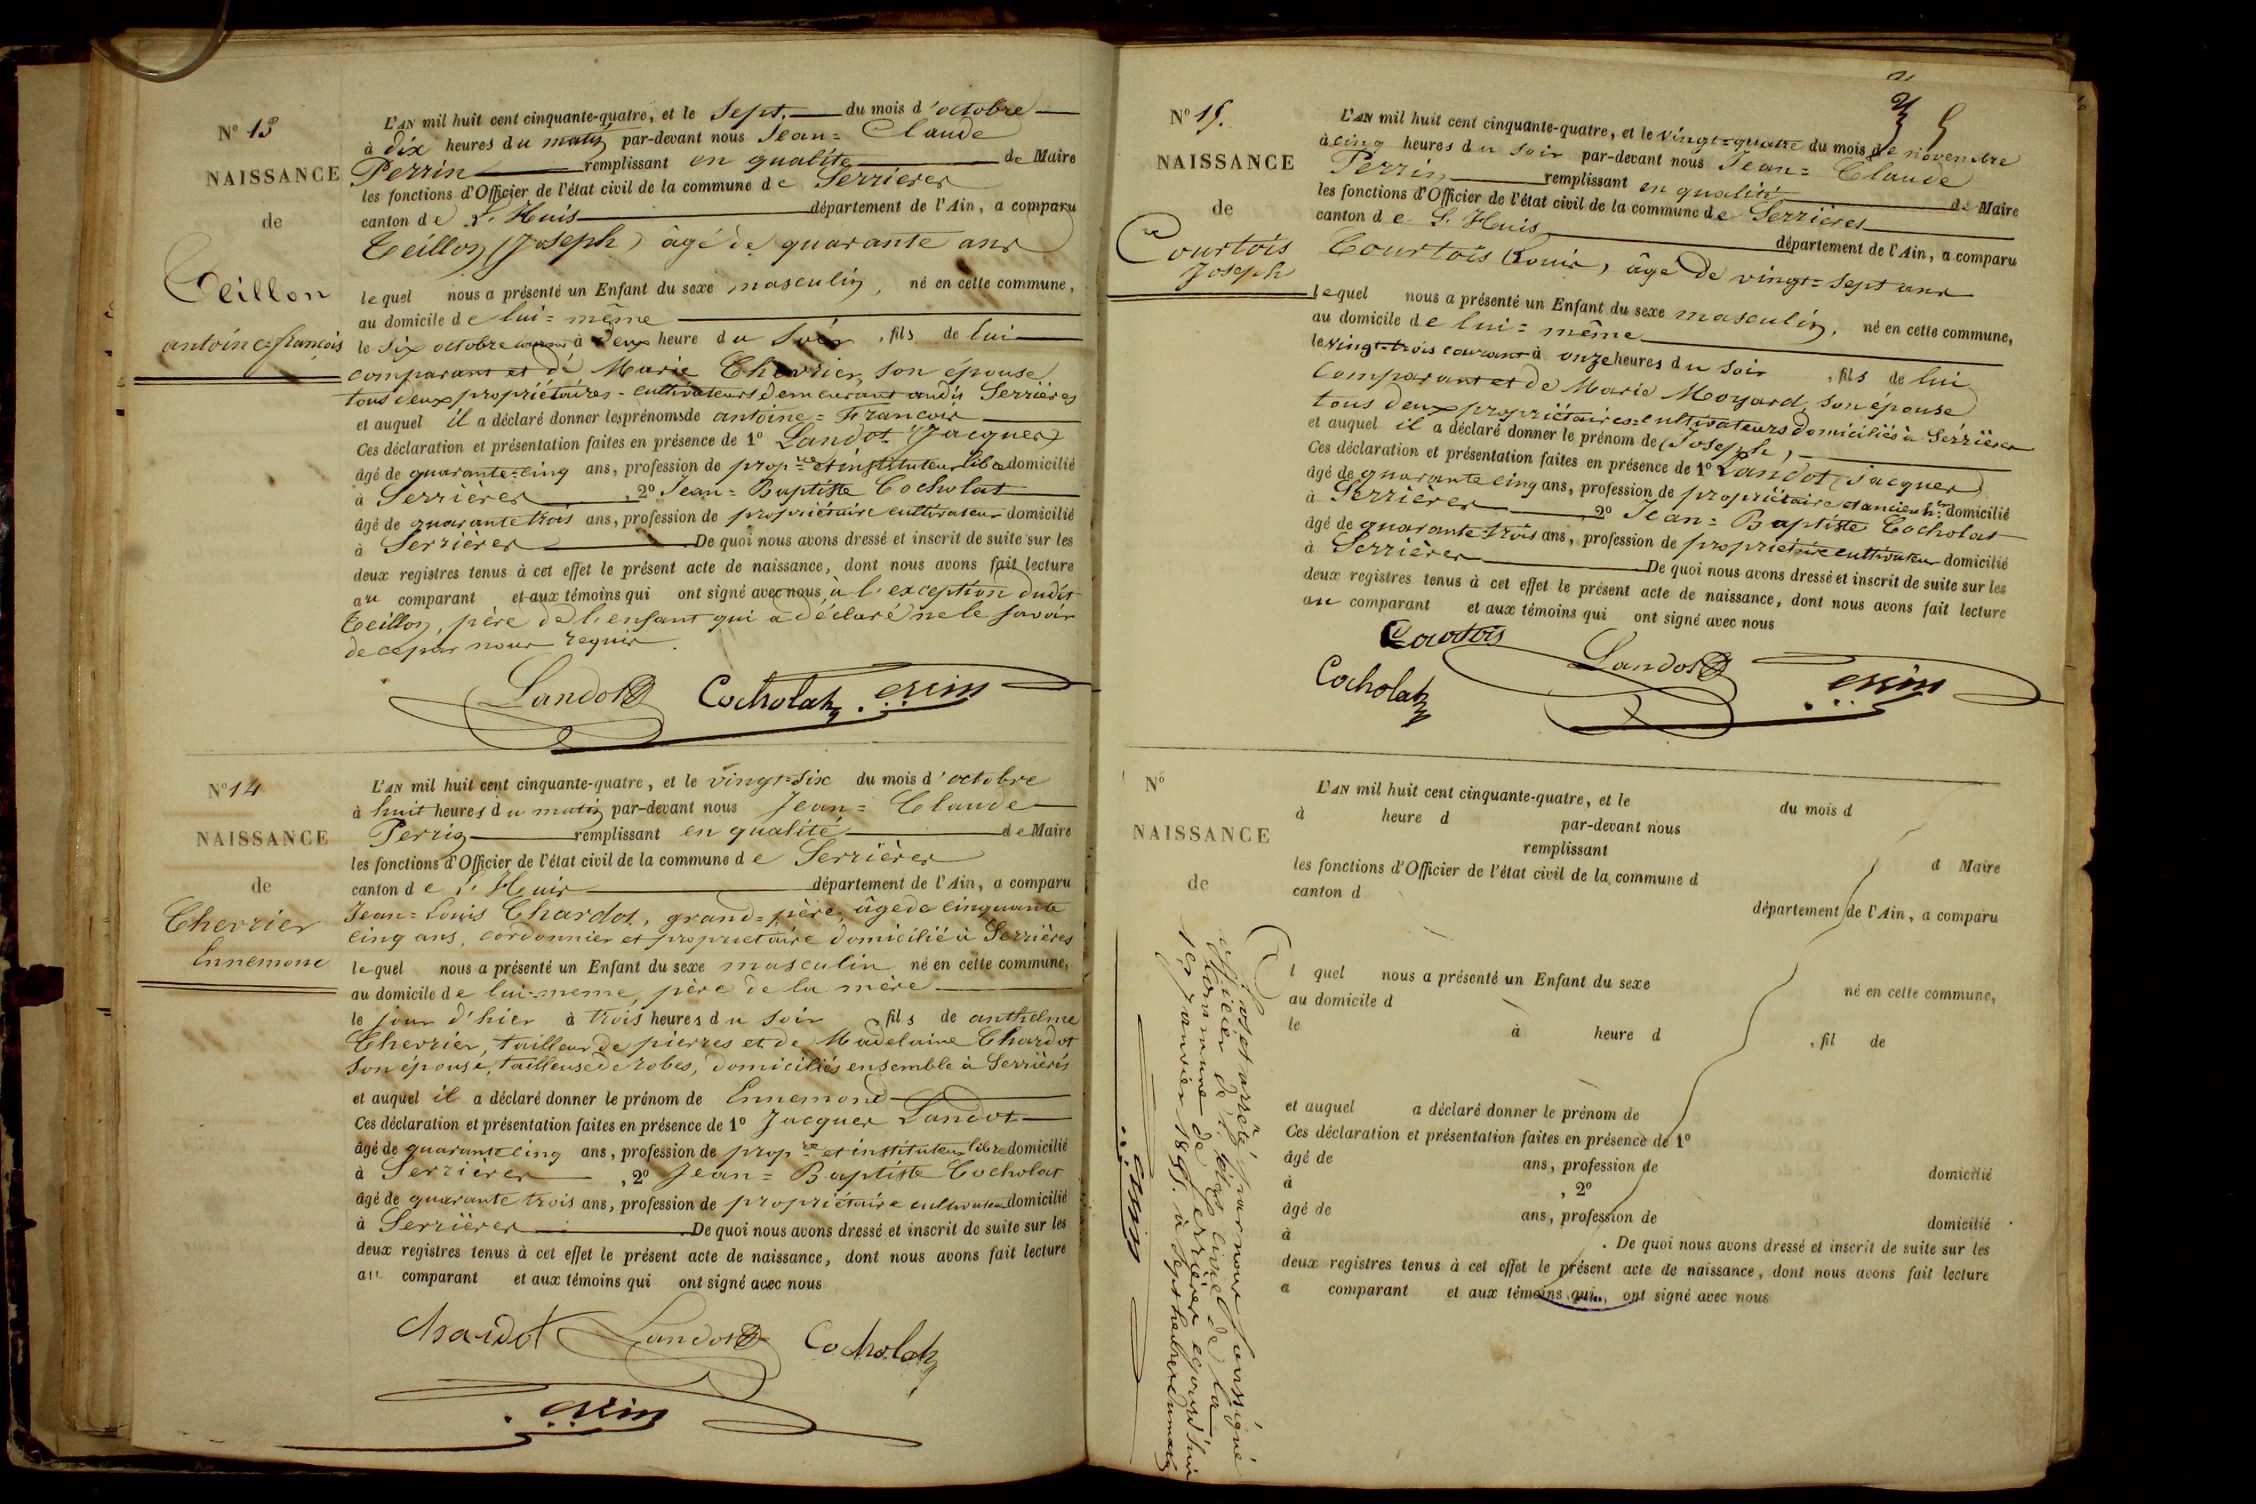 N° 13
NAISSANCE
de
Teillon
antoine=françois
L'AN mil huit cent cinquante-quatre, et le Sept, du mois d'octobre
à dix heures du matin par-devant nous Jean= Claude
Perrin remplissant en qualité de Maire
les fonctions d'Officier de l'état civil de la commune de Serrières
canton de L'Huis département de l'Ain, a comparu
Teillon (Joseph) âgé de quarante ans
lequel nous a présenté un Enfant du sexe masculin, né en cette commune,
au domicile de lui=même
le Six octobre courant à Deux heure du Soir, fils de lui
comparant et de Marie Chevrier, son épouse
tous deux propriétaires-cultivateurs demeurant audit Serrières
et auquel il a déclaré donner les prénoms de antoine=François
Ces déclaration et présentation faites en présence de 1° Landot (Jacques)
âgé de quarante=cinq ans, profession de prop.re et instituteur libre domicilié
à Serrières, 2° Jean=Baptiste Cocholat
âgé de quarante trois ans, profession de propriétaire cultivateur domicilié
à Serrières De quoi nous avons dressé et inscrit de suite sur les
deux registres tenus à cet effet le présent acte de naissance, dont nous avons fait lecture
au comparant et aux témoins qui ont signé avec nous, à l'exception dudit
Teillon, père de l'enfant qui a déclaré ne le savoir
de ce par nous requis.
Landot Cocholat Perrin
N° 14
NAISSANCE
de
Chevrier
Ennemond
L'AN mil huit cent cinquante-quatre, et le vingt=six du mois d'octobre
à huit heures du matin par-devant nous Jean= Claude
Perrin remplissant en qualité de Maire
les fonctions d'Officier de l'état civil de la commune de Serrières
canton de L'Huis département de l'Ain, a comparu
Jean=Louis Chardot, grand=père, âgé de cinquante
cinq ans, cordonnier et propriétaire domicilié à Serrières
lequel nous a présenté un Enfant du sexe masculin né en cette commune,
au domicile de lui=même, père de la mère
le jour d'hier à trois heures du soir, fils de anthelme
Chevrier, tailleur de pierres et de Madelaine Chardot
son épouse, tailleuse de robes, domiciliés ensemble à Serrières
et auquel il a déclaré donner le prénom de Ennemond
Ces déclaration et présentation faites en présence de 1° Jacques Landot
âgé de quarante cinq ans, profession de prop.re et instituteur libre domicilié
à Serrières, 2° Jean= Baptiste Cocholat
âgé de quarante trois ans, profession de propriétaire cultivateur domicilié
à Serrières De quoi nous avons dressé et inscrit de suite sur les
deux registres tenus à cet effet le présent acte de naissance, dont nous avons fait lecture
au comparant et aux témoins qui ont signé avec nous
Chardot Landot Cocholat
Perrin
N° 15.
NAISSANCE
de
Courtois
Joseph
L'AN mil huit cent cinquante-quatre, et le vingt=quatre du mois de novembre
à cinq heures du soir par-devant nous Jean= Claude
Perrin, remplissant en qualité de Maire
les fonctions d'Officier de l'état civil de la commune de Serrières
canton de L'Huis département de l'Ain, a comparu
Courtois Louis, âgé de vingt=sept ans
lequel nous a présenté un Enfant du sexe masculin, né en cette commune,
au domicile de lui=même
le vingt=trois courant à onze heures du soir, fils de lui
Comparant et de Marie Moyard, son épouse
tous deux propriétaires=cultivateurs domiciliés à Serrières
et auquel il a déclaré donner le prénom de (Joseph)
Ces déclaration et présentation faites en présence de 1° Landot (Jacques)
âgé de quarante cinq ans, profession de propriétaire et ancien domicilié
à Serrières, 2° Jean=Baptiste Cocholat
âgé de quarante-trois ans, profession de propriétaire cultivateur domicilié
à Serrières De quoi nous avons dressé et inscrit de suite sur les
deux registres tenus à cet effet le présent acte de naissance, dont nous avons fait lecture
au comparant et aux témoins qui ont signé avec nous
Courtois
Cocholat Landot Perrin
N°
NAISSANCE
de
L'AN mil huit cent cinquante-quatre, et le du mois d
à heure d par-devant nous
remplissant d Maire
les fonctions d'Officier de l'état civil de la commune d
canton d département de l'Ain, a comparu
l quel nous a présenté un Enfant du sexe né en cette commune,
au domicile d
le à heure d, fil de
et auquel a déclaré donner le prénom de
Ces déclaration et présentation faites en présence de 1°
âgé de ans, profession de domicilié
à, 2°
âgé de ans, profession de domicilié
à. De quoi nous avons dressé et inscrit de suite sur les
deux registres tenus à cet effet le présent acte de naissance, dont nous avons fait lecture
a comparant et aux témoins qui ont signé avec nous
Clos et arrêté par nous soussigné
officier de l'état civil de la
Commune de Serrières ce jourd'hui
1er Janvier 1855. à Sept heures du matin
Perrin